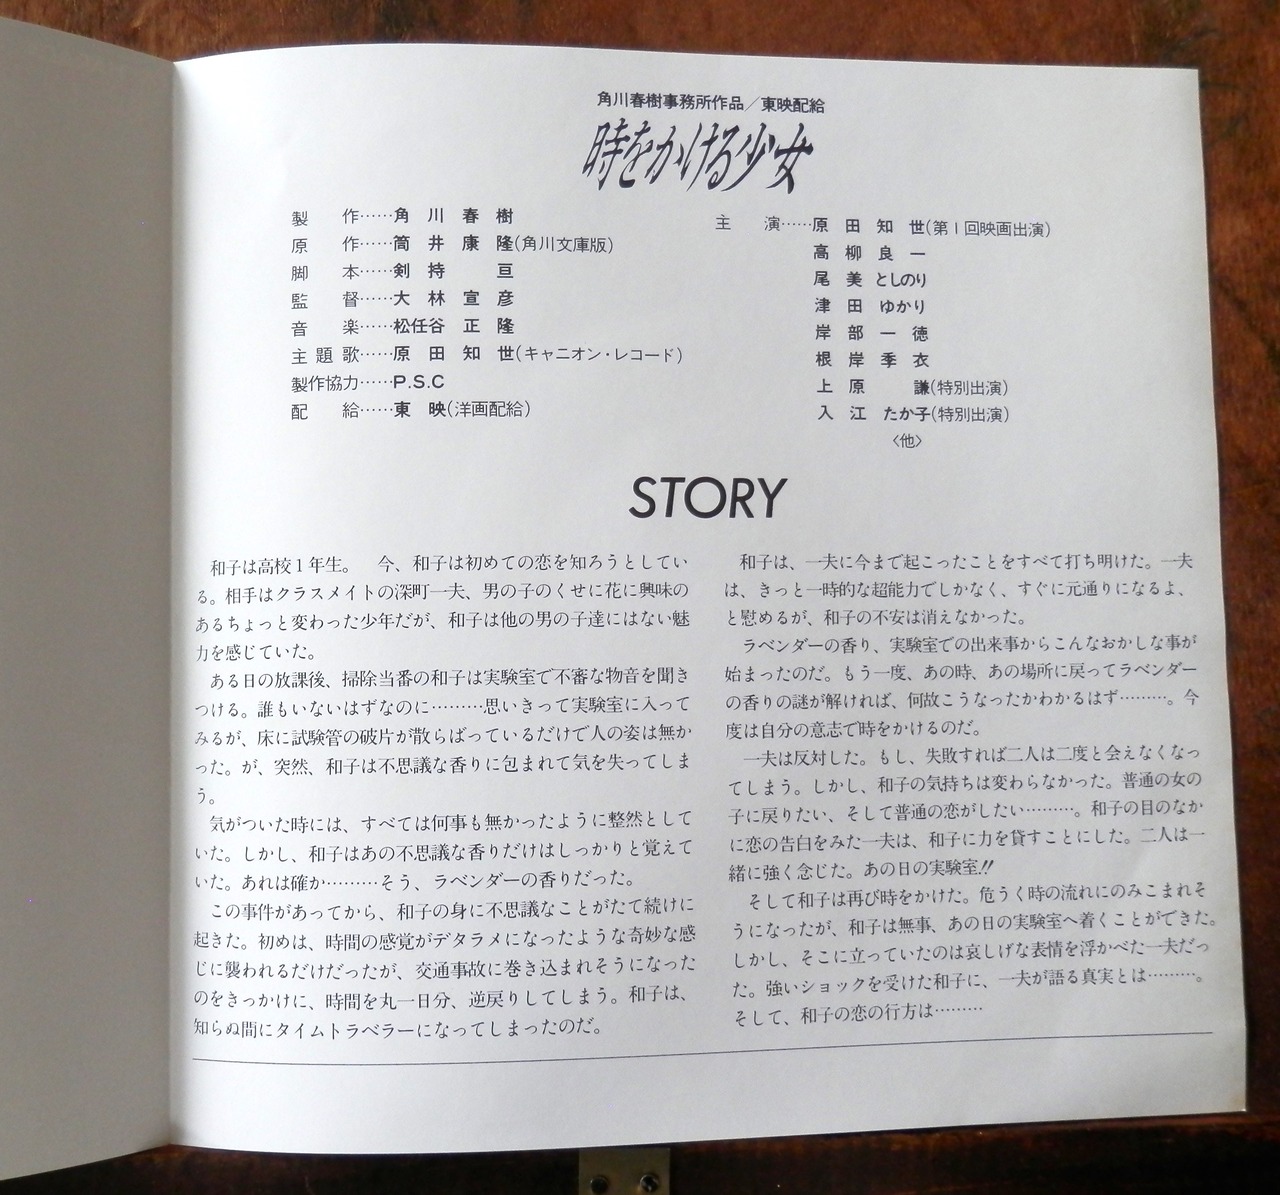 角川春樹事務所作品／東映配給
時をかける少女
製作……角川春樹
原作……筒井康隆(角川文庫版)
脚本……剣持亘
監督……大林宣彦
音楽……松任谷正隆
主題歌……原田知世(キャニオン・レコード)
製作協力……P.S.C
配給……東映(洋画配給)
主演……原田知世(第1回映画出演)
高柳良一
尾美としのり
津田ゆかり
岸部一徳
根岸季衣
上原謙(特別出演)
入江たか子(特別出演)
〈他〉
STORY
和子は高校1年生。　今、和子は初めての恋を知ろうとしてい
る。相手はクラスメイトの深町一夫、男の子のくせに花に興味の
あるちょっと変わった少年だが、和子は他の男の子達にはない魅
力を感じていた。
ある日の放課後、掃除当番の和子は実験室で不審な物音を聞き
つける。誰もいないはずなのに………思いきって実験室に入って
みるが、床に試験管の破片が散らばっているだけで人の姿は無か
った。が、突然、和子は不思議な香りに包まれて気を失ってしま
う。
気がついた時には、すべては何事も無かったように整然として
いた。しかし、和子はあの不思議な香りだけはしっかりと覚えて
いた。あれは確か………そう、ラベンダーの香りだった。
この事件があってから、和子の身に不思議なことがたて続けに
起きた。初めは、時間の感覚がデタラメになったような奇妙な感
じに襲われるだけだったが、交通事故に巻き込まれそうになった
のをきっかけに、時間を丸一日分、逆戻りしてしまう。和子は、
知らぬ間にタイムトラベラーになってしまったのだ。
和子は、一夫に今まで起こったことをすべて打ち明けた。一夫
は、きっと一時的な超能力でしかなく、すぐに元通りになるよ、
と慰めるが、和子の不安は消えなかった。
ラベンダーの香り、実験室での出来事からこんなおかしな事が
始まったのだ。もう一度、あの時、あの場所に戻ってラベンダー
の香りの謎が解ければ、何故こうなったかわかるはず………。今
度は自分の意志で時をかけるのだ。
一夫は反対した。もし、失敗すれば二人は二度と会えなくなっ
てしまう。しかし、和子の気持ちは変わらなかった。普通の女の
子に戻りたい、そして普通の恋がしたい………。和子の目のなか
に恋の告白をみた一夫は、和子に力を貸すことにした。二人は一
緒に強く念じた。あの日の実験室!!
そして和子は再び時をかけた。危うく時の流れにのみこまれそ
うになったが、和子は無事、あの日の実験室へ着くことができた。
しかし、そこに立っていたのは哀しげな表情を浮かべた一夫だっ
た。強いショックを受けた和子に、一夫が語る真実とは………。
そして、和子の恋の行方は………